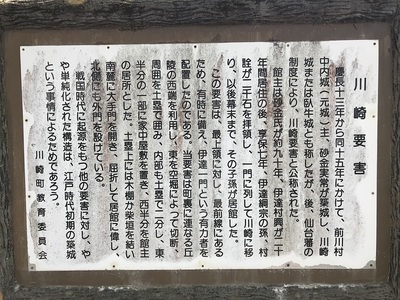 川崎要害
慶長十三年から同十五年にかけて、前川村
中内城（元城）主、砂金実常が築城し、川崎
城または臥牛城とも称したが、後、仙台藩の
制度により、川崎要害と公称された。
館主は砂金氏が約九十年、伊達村興が二十
年間居住の後、享保七年、伊達綱宗の孫、村
詮が二千石を拝領し、一門に列して川崎に移
り、以後幕末まで、その子孫が居館した。
この要害は、最上領に対し、最前線にある
ため、有時に備え、伊達一門という有力者を
配置したのである。当要害は町裏に連なる丘
陵の西端を利用し、東を空堀によって切断、
周囲を土塁で囲み、内部も土塁で二分し、東
半分の一部に家中屋敷を置き、西半分を館主
の居所とした。土塁上では木棚か柴垣を結い
南麓に大手門を開き、屈折して居館に偉し、
北側にも外門を設けている。
戦国時代に起源をもつ他の要害に対し、や
や単純化された構造は、江戸時代初期の築城
という事情によるためであろう。
川崎町教育委員会